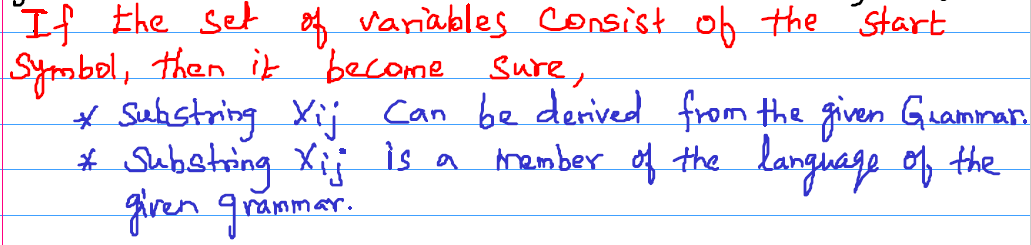 If the set of variables consist of the start
Symbol, then it become sure,
* Substring Xij Can be derived from the given Grammar.
* Substring Xij is a member of the language of the
given grammar.